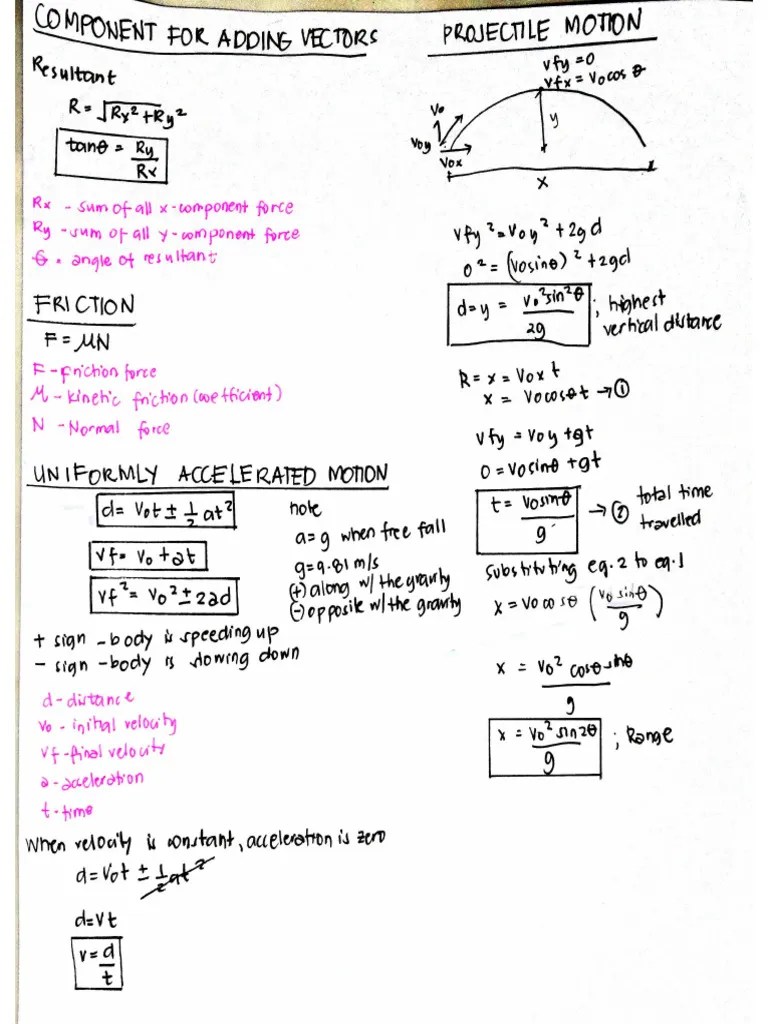 COMPONENT FOR ADDING VECTORS
Resultant
R = √Rx² + Ry²
tanθ = Ry/Rx
Rx - sum of all x-component force
Ry - sum of all y-component force
θ - angle of resultant
FRICTION
F = μN
F - friction force
μ - kinetic friction (coefficient)
N - Normal force
UNIFORMLY ACCELERATED MOTION
d = Vot ± 1/2 at²
Vf = Vo + at
Vf² = Vo² ± 2ad
note
a = g when free fall
g = 9.81 m/s
(+) along w/ the gravity
(-) opposite w/ the gravity
+ sign - body is speeding up
- sign - body is slowing down
d - distance
Vo - initial velocity
Vf - final velocity
a - acceleration
t - time
When velocity is constant, acceleration is zero
d = Vot ± 1/2 at²
d = Vt
v = d/t
PROJECTILE MOTION
Vfy = 0
Vfx = Vo cos θ
Vo
Voy
Vox
y
x
Vfy² = Voy² + 2gd
0² = (Vosinθ)² + 2gd
d = y = Vo²sin²θ/2g ; highest
vertical distance
R = x = Vox t
x = Vocosθt → ①
Vfy = Voy + gt
0 = Vosinθ + gt
t = Vosinθ/g → ② total time
travelled
substituting eq.2 to eq.1
x = Vo cosθ (Vo sinθ/g)
x = Vo² cosθ sinθ/g
x = Vo² sin2θ/g ; Range